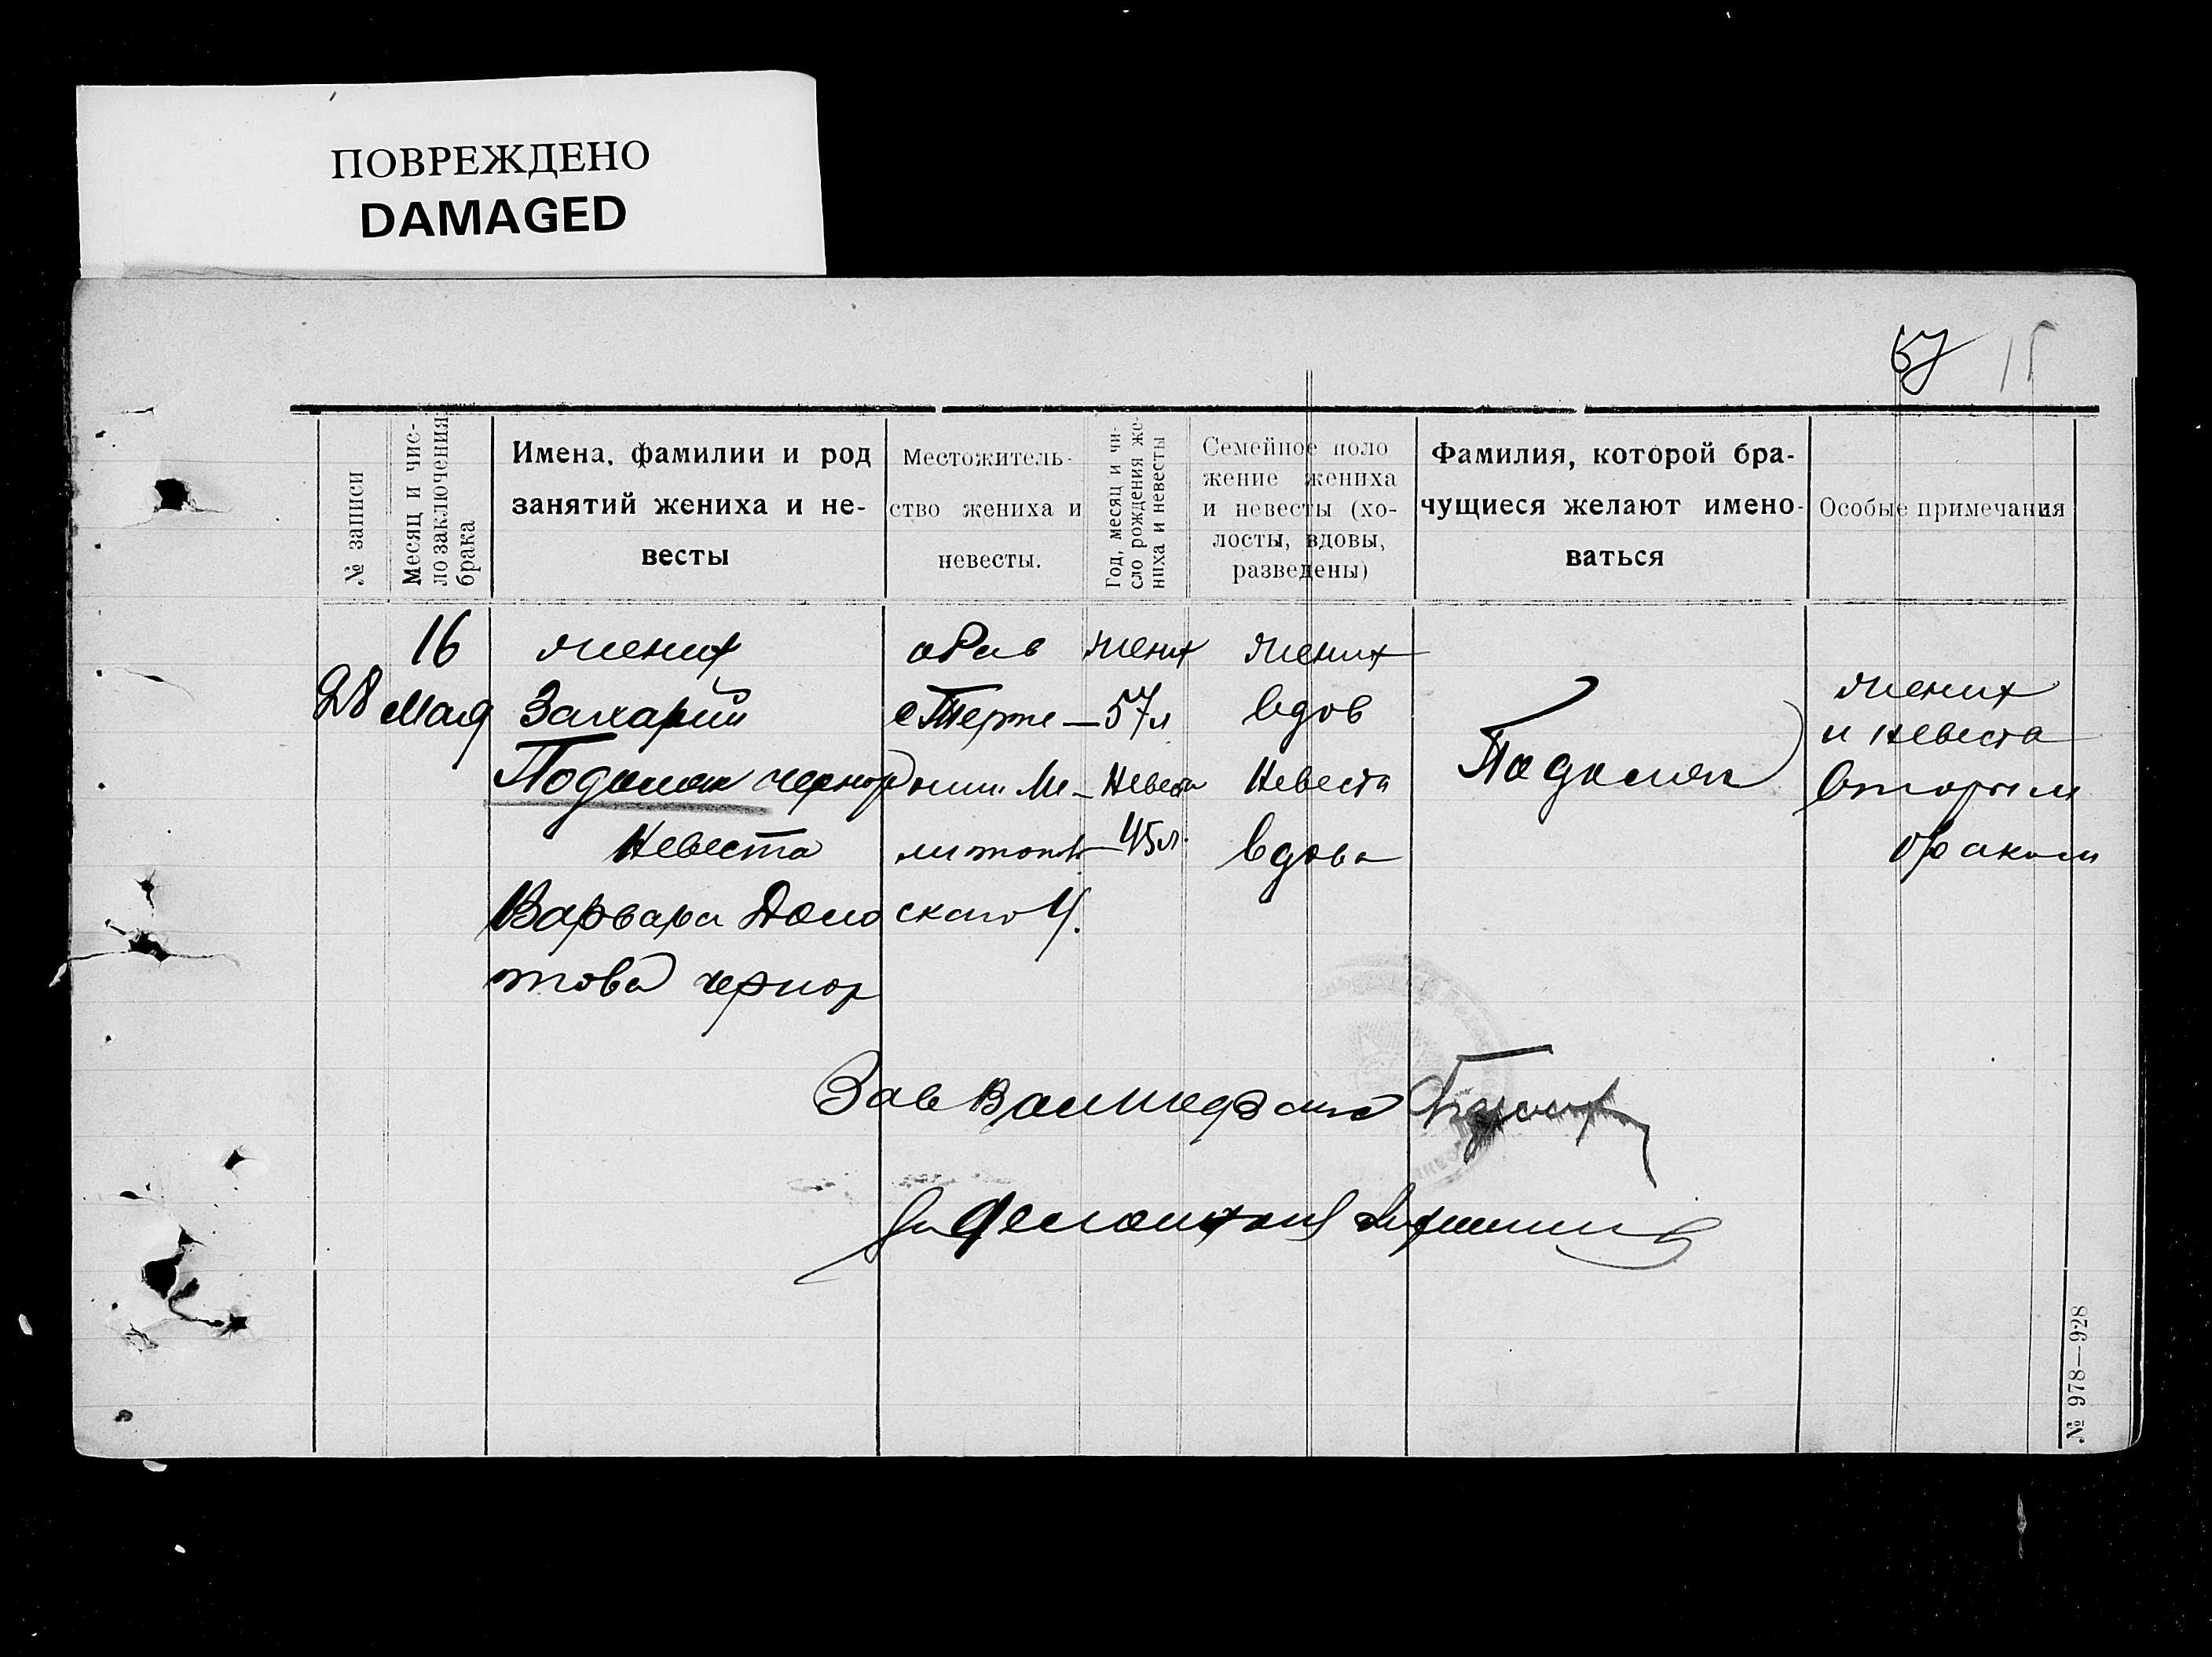 ПОВРЕЖДЕНО
DAMAGED
57 15
№ записи
Месяц и чис-
ло заключения
брака
Имена, фамилии и род
занятий жениха и не-
весты
Местожитель-
ство жениха и
невесты.
Год, месяц и чи-
сло рождения же-
ниха и невесты
Семейное поло
жение жениха
и невесты (хо-
лосты, вдовы,
разведены)
Фамилия, которой бра-
чущиеся желают имено-
ваться
Особые примечания
28
16
Мая
жених
Захарий
чернор
Невеста
Варвара Дома
това чернор
оба в
с Терпе—
нии Ме—
литопо
ского У.
жених
57 л
Невеста
45 л.
жених
вдов
Невеста
вдова
жених
и невеста
вторым
браком
Зав
№ 978—928